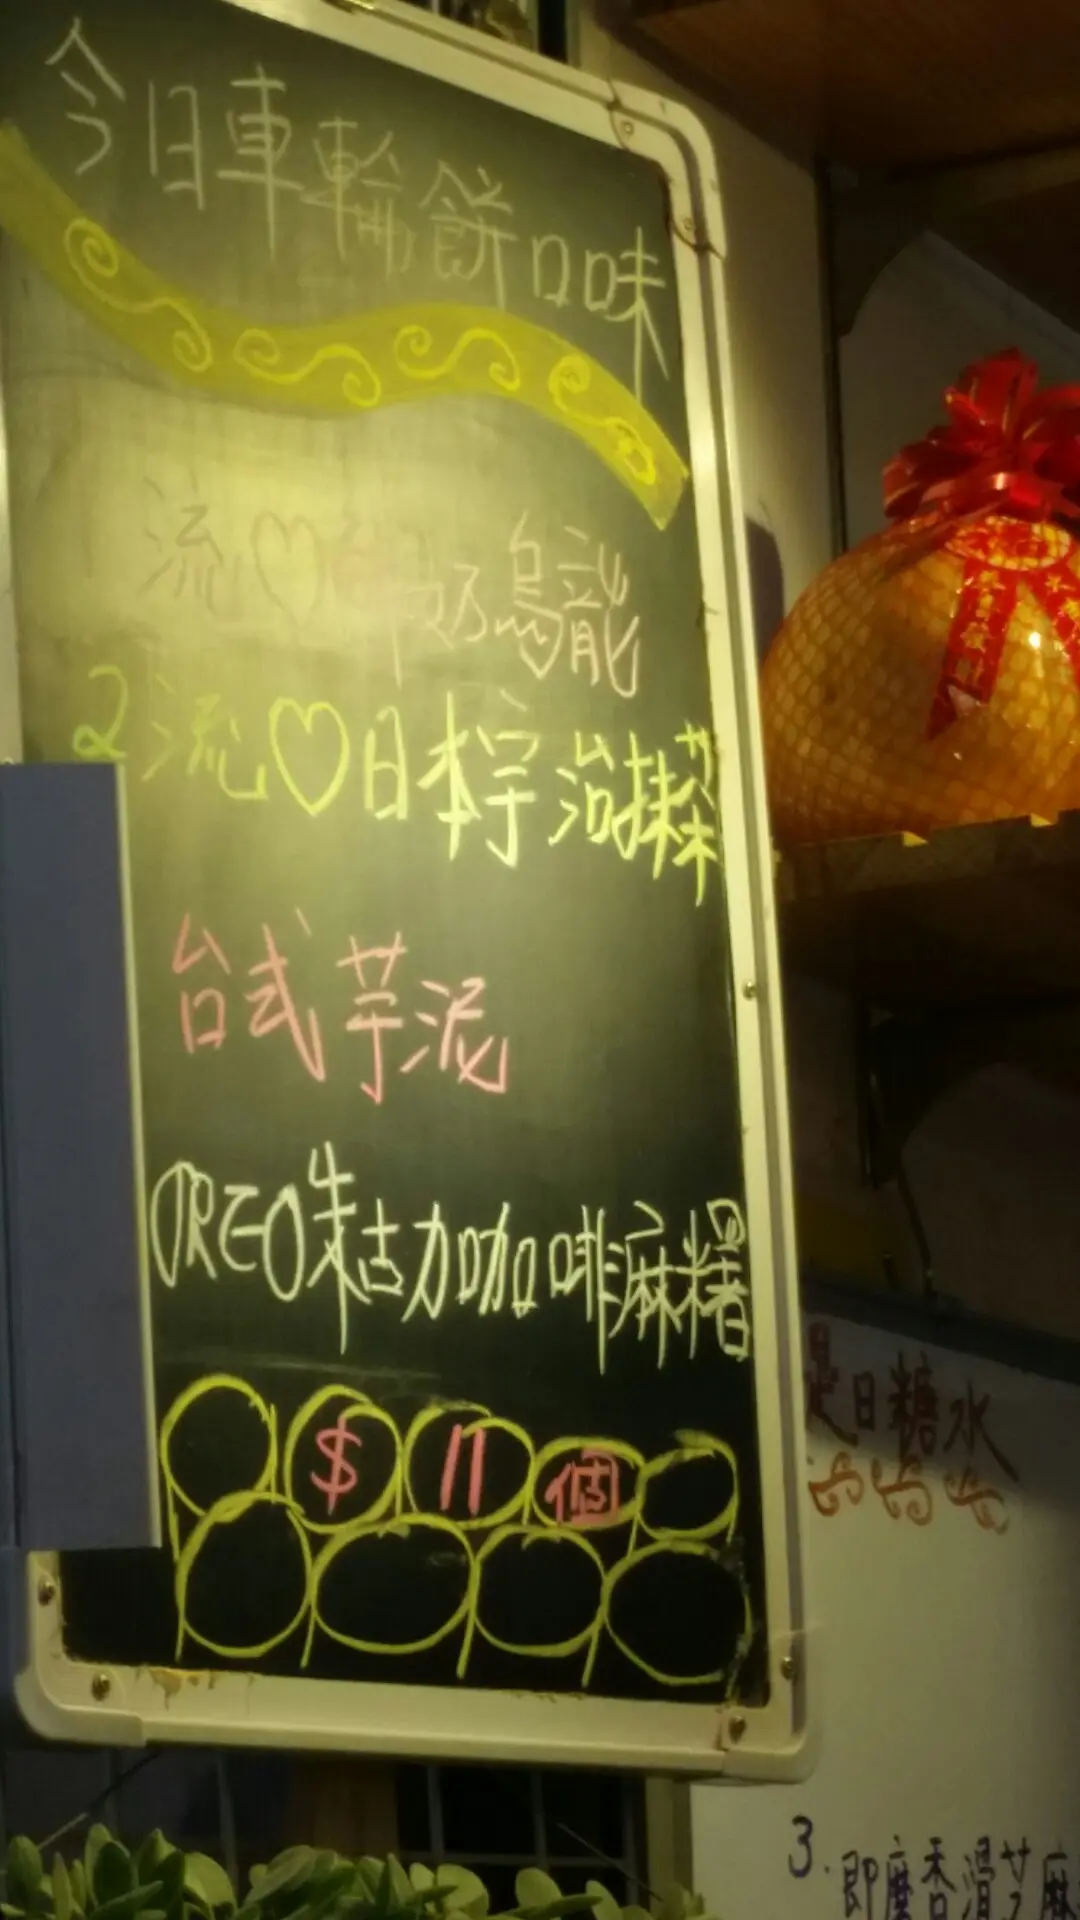 今日車輪餅口味
流♡ 牛奶烏龍
2流♡日本宇治抹茶
台式芋泥
OREO朱古力咖啡麻糬
$ 11 個
是日糖水
3. 即磨香滑芝麻